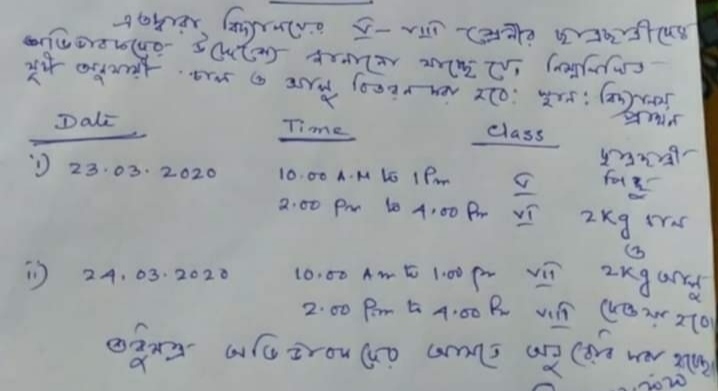 এতদ্বারা বিদ্যালয়ের V - VIII শ্রেণীর ছাত্রছাত্রীদের
অভিভাবকদের উদ্দেশ্যে জানানো যাচ্ছে যে, নিম্নলিখিত
সূচী অনুযায়ী চাল ও আলু বিতরন করা হবে। স্থান : বিদ্যালয়
প্রাঙ্গন
Date Time Class
i) 23.03.2020 10.00 A.M to 1 Pm V ছাত্রছাত্রী পিছু
2.00 Pm to 4.00 Pm VI 2Kg চাল
ও
ii) 24.03.2020 10.00 Am to 1.00 Pm VII 2Kg আলু
2.00 P.m to 4.00 Pm VIII দেওয়া হবে।
শুধুমাত্র অভিভাবকদের আসতে অনুরোধ করা হচ্ছে।